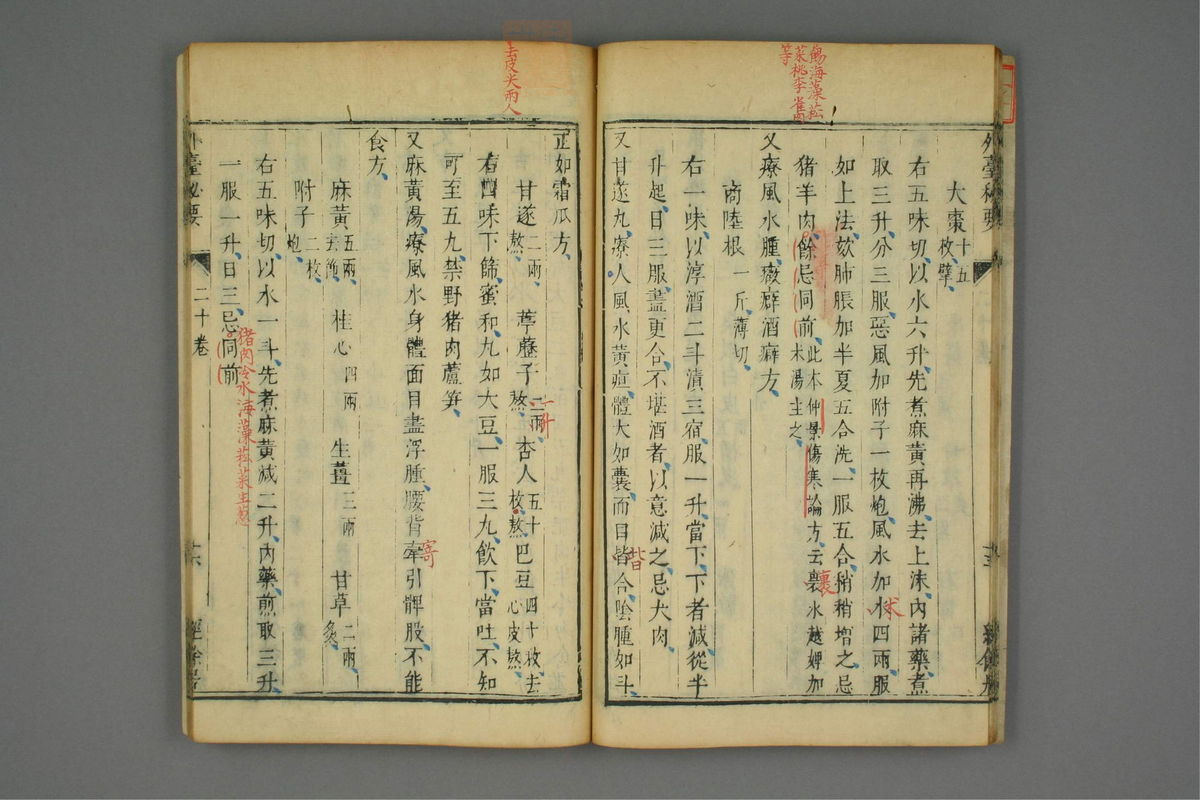 餳海藻菘
菜桃李雀肉
等
外臺秘要
大棗十五枚擘
右五味切以水六升先煮麻黃再沸去上沫內諸藥煮
取三升分三服惡風加附子一枚炮風水加水四兩服
朮
如上法欬肺脹加半夏五合洗一服五合稍稍增之忌
猪羊肉餘忌同前此本仲景傷寒論方云裏水越婢加
朮湯主之
裏
又療風水腫癥癖酒癖方
商陸根一斤薄切
右一味以淳酒二斗漬三宿服一升當下下者減從半
升起日三服盡更合不堪酒者以意減之忌犬肉
又甘遂丸療人風水黃疸體大如囊面目皆合陰腫如斗
眥
去皮尖兩人
正如霜瓜方
甘遂二兩熬 葶藶子二兩熬 杏人五十枚熬 巴豆四十枚去心皮熬
一升
右四味下篩蜜和丸如大豆一服三丸飲下當吐不知
可至五丸禁野猪肉蘆笋
又麻黃湯療風水身體面目盡浮腫腰背牽引髀股不能
食方
麻黃五兩去節 桂心四兩 生薑三兩 甘草二兩炙
附子二枚炮
右五味切以水一斗先煮麻黃減二升內藥煎取三升
一服一升日三忌同前
猪肉冷水海藻菘菜生葱
外臺秘要
二十卷
十六
經餘居